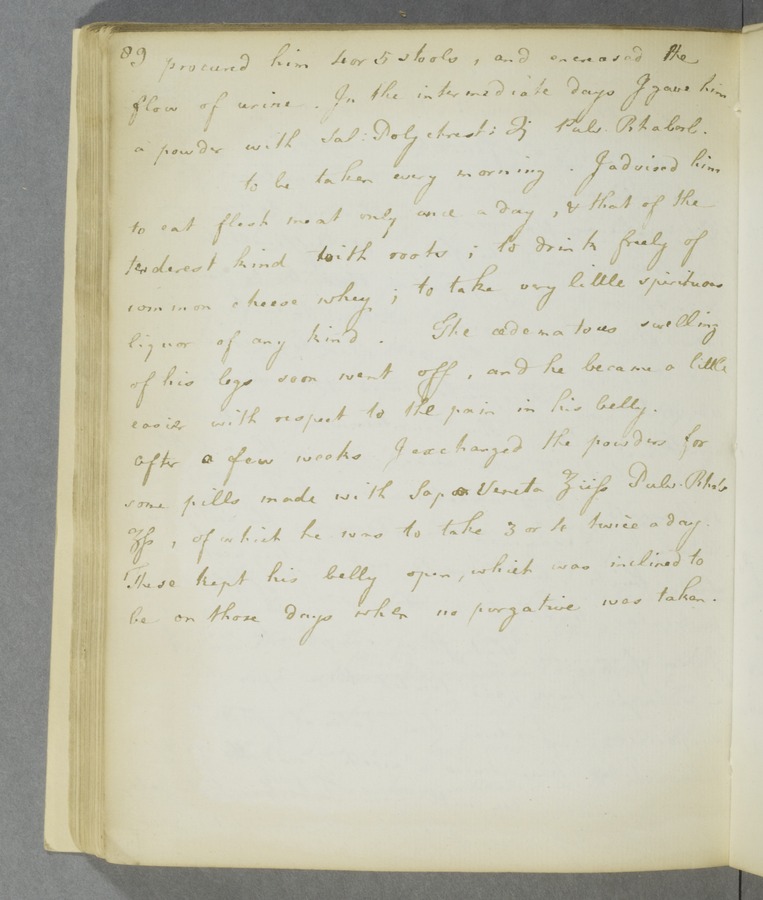 89
procured him 4 or 5 stools, and encreased the
flow of urine. In the intermediate days I gave him
a powder with Sal: Polychrest: ʒj Pulv. Rhabarb.
to be taken every morning. I advised him
to eat flesh meat only once a day, & that of the
tenderest kind with roots; to drink freely of
common cheese whey; to take very little spirituous
liquor of any kind. The œdematous swelling
of his legs soon went off, and he became a little
easier with respect to the pain in his belly.
After a few weeks I exchanged the powders for
some pills made with Sapon Veneta Pulv. Rhab
ʒß, of which he was to take 3 or 4 twice a day.
These kept his belly open, which was inclined to
be on those days when no purgative was taken.